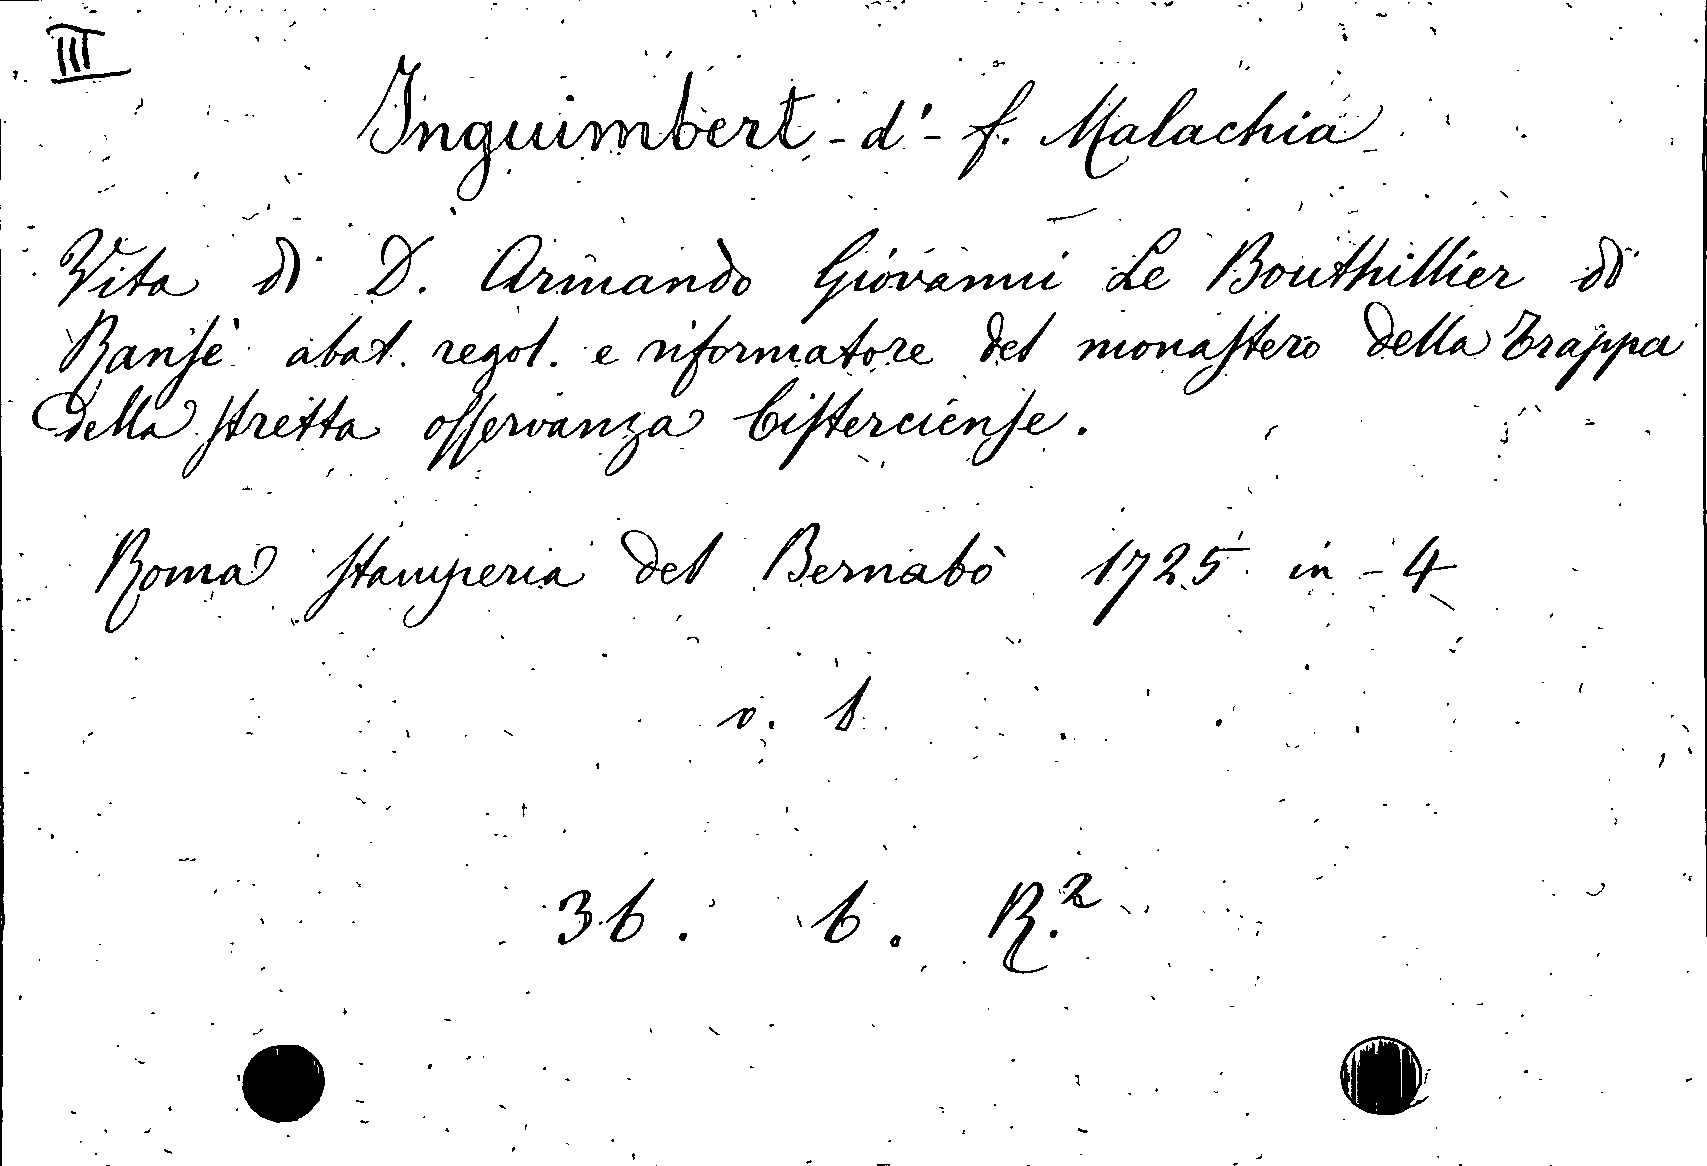 III
Inguimbert - d' - f. Malachia
Vita di D. Armando Giovanni Le Bouthillier di
Ransè abat. regol. e riformatore del monastero della Trappa
della stretta osservanza Cisterciense.
Roma stamperia del Bernabò 1725 in - 4
v. 1
36. 6. R.²